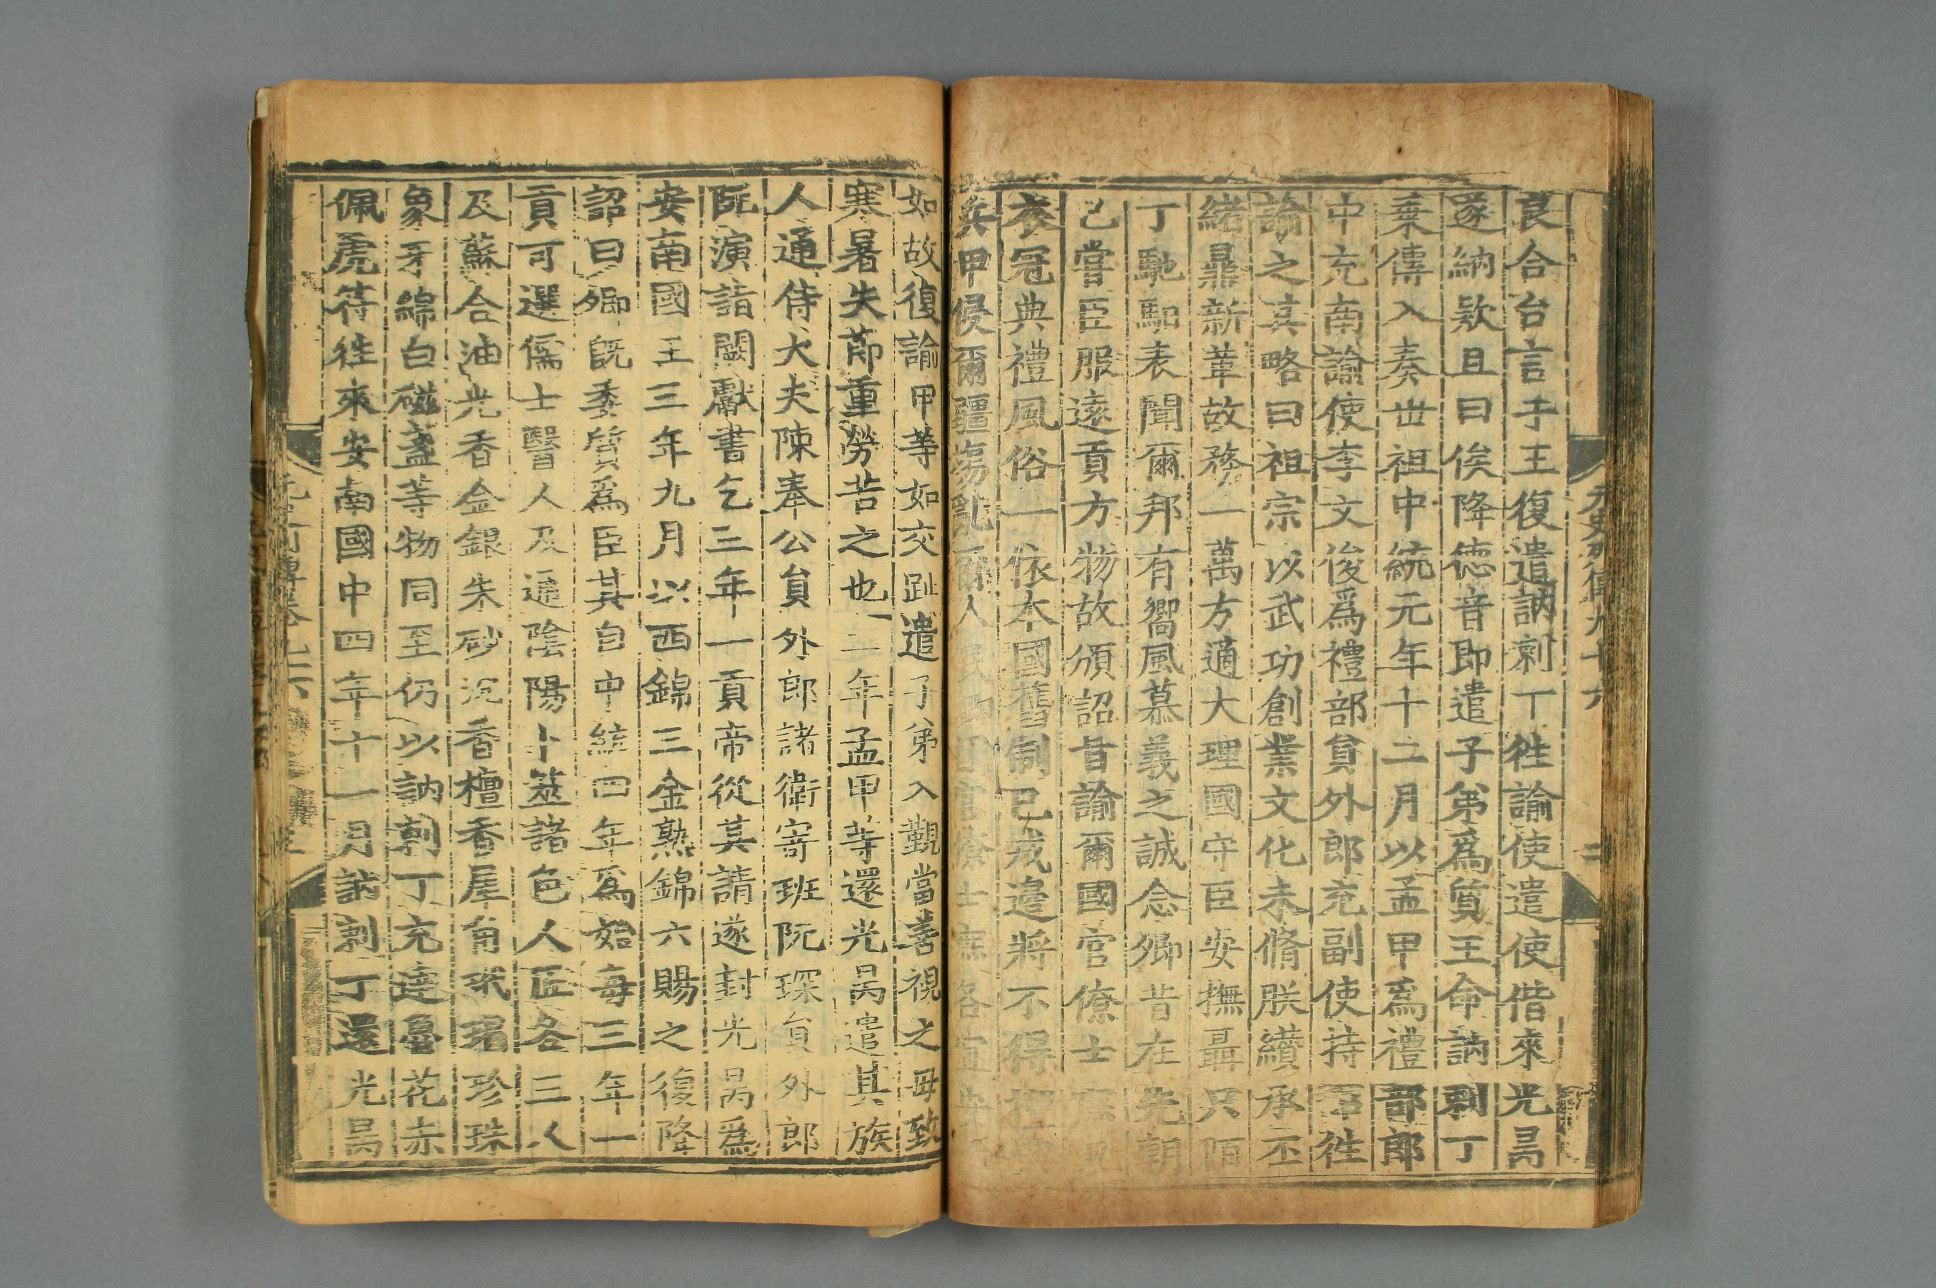 良合台言于王復遣訥剌丁徃諭使遣使偕來光昺
遂納欵且曰俟降德音即遣子弟爲質王命訥剌丁
乗傳入奏世祖中統元年十二月以孟甲爲禮部郎
中充南諭使李文俊爲禮部貟外郎充副使持詔徃
諭之其略曰祖宗以武功創業文化未脩朕纘承丕
緒鼎新革故務一萬方適大理國守臣安撫聶只陌
丁馳馹表聞爾邦有嚮風慕義之誠念卿昔在先朝
已嘗臣服遠貢方物故頒詔旨諭爾國官僚士庶凡
衣冠典禮風俗一依本國舊制已戒邉將不得擅興
兵甲侵爾疆埸亂爾人民卿國官僚士庶各宜安
如故復諭甲等如交趾遣子弟入覲當善視之毋致
寒暑失節重勞苦之也二年孟甲等還光昺遣其族
人通侍大夫陳奉公貟外郎諸衛寄班阮琛貟外郎
阮演詣闕獻書乞三年一貢帝從其請遂封光昺爲
安南國王三年九月以西錦三金熟錦六賜之復降
詔曰卿旣委質爲臣其自中統四年爲始每三年一
貢可選儒士醫人及通陰陽卜筮諸色人匠各三人
及蘇合油光香金銀朱砂沉香檀香犀角玳瑁珍珠
象牙綿白磁盞等物同至仍以訥剌丁充達魯花赤
佩虎符徃來安南國中四年十一月訥剌丁還光昺
元史列傳九十六 二